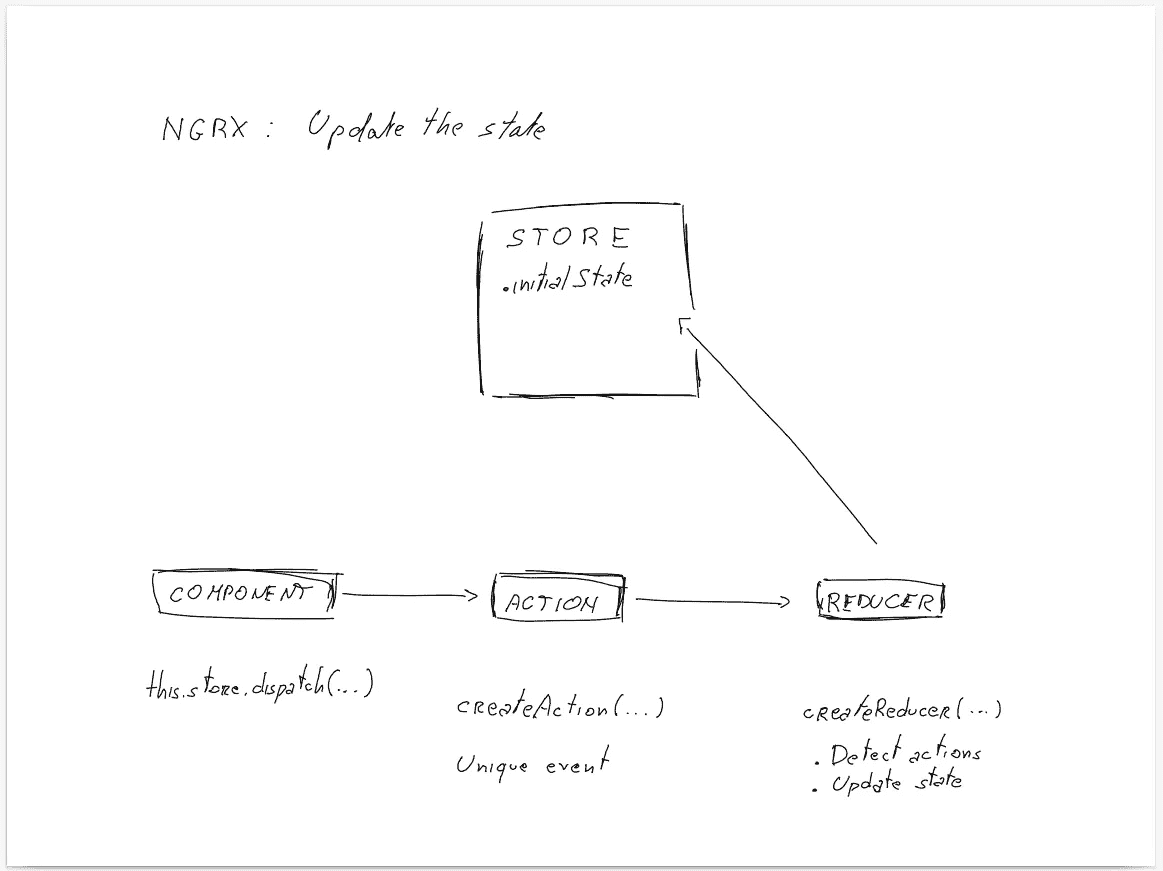 NGRX : Update the state
STORE
.initialState
COMPONENT
ACTION
REDUCER
this.store.dispatch(...)
createAction(...)
Unique event
createReducer(...)
. Detect actions
. Update state